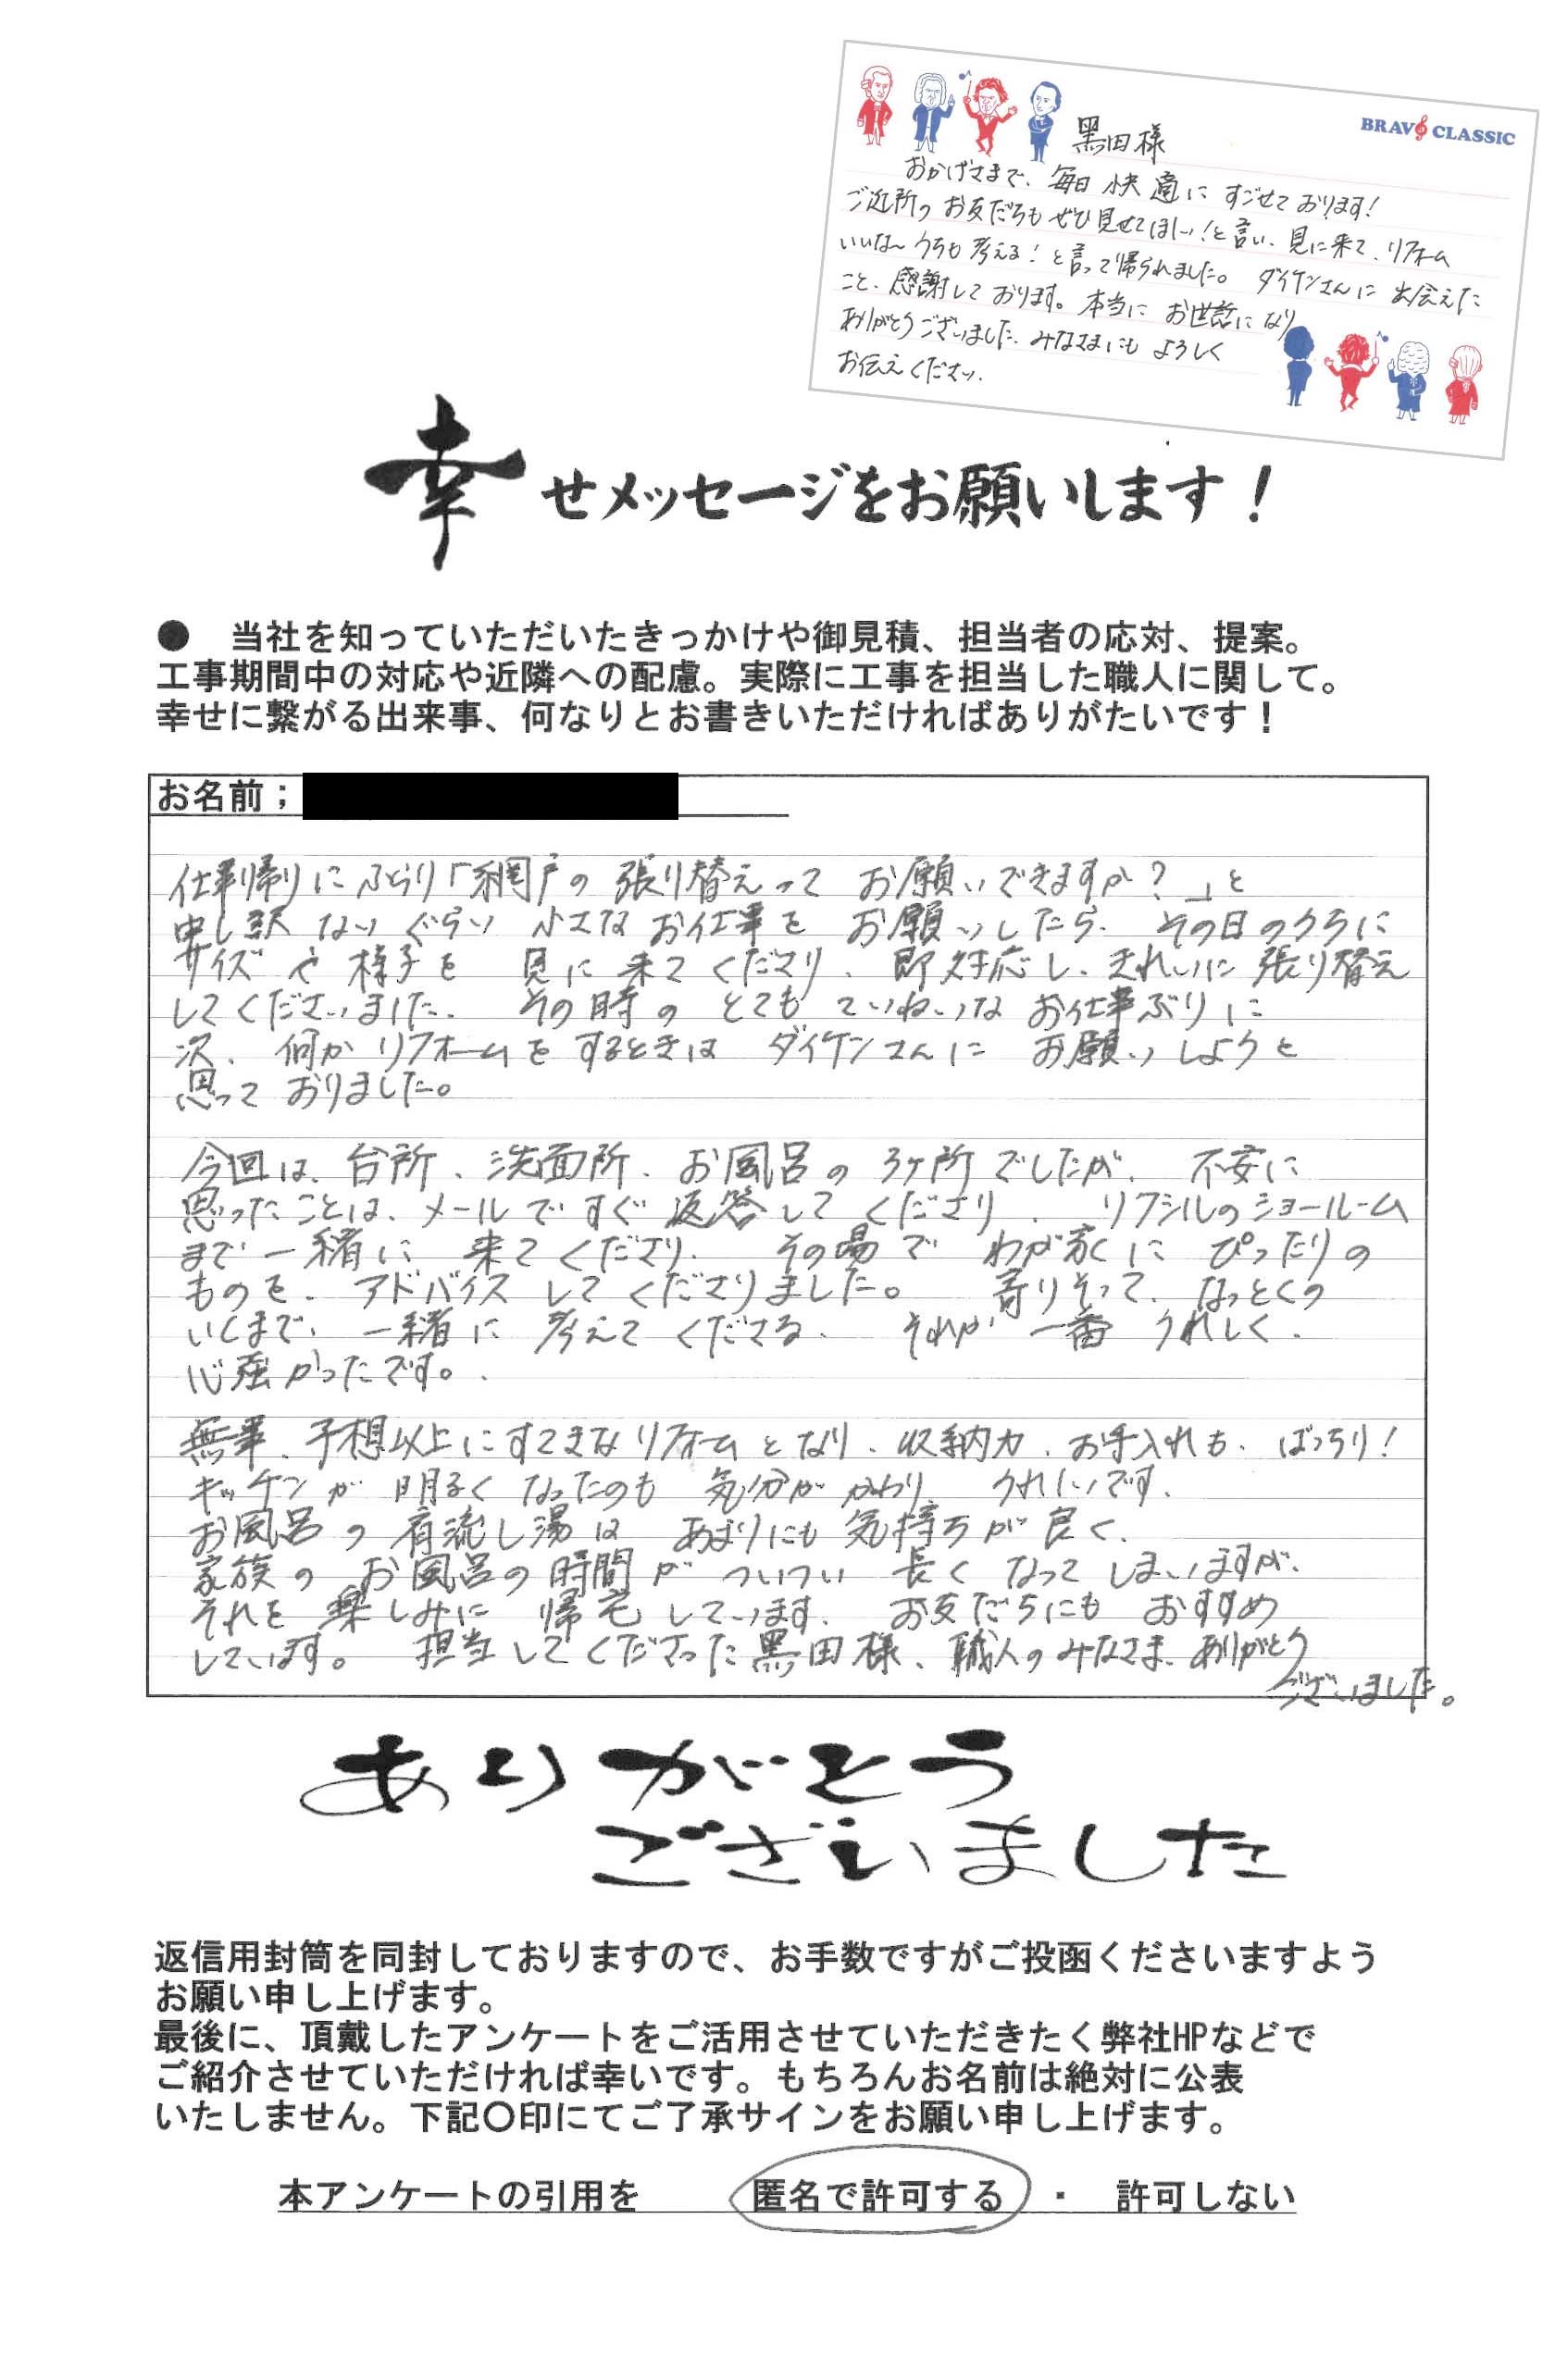 BRAVO CLASSIC
黒田様
おかげさまで、毎日快適にすごせております!
ご近所のお友だちもぜひ見せてほしい!と言い、見に来て、リフォーム
いいな～うちも考える!と言って帰られました。ダイケンさんに出会えた
こと、感謝しております。本当にお世話になり
ありがとうございました。みなさまにもよろしく
お伝えください。
幸せメッセージをお願いします!
● 当社を知っていただいたきっかけや御見積、担当者の応対、提案。
工事期間中の対応や近隣への配慮。実際に工事を担当した職人に関して。
幸せに繋がる出来事、何なりとお書きいただければありがたいです!
お名前;
仕事帰りにふらり「網戸の張り替えってお願いできますか?」と
申し訳ないぐらい小さなお仕事をお願いしたら、その日のうちに
サイズや様子を見に来てくださり、即対応し、きれいに張り替え
してくださいました。その時のとてもていねいなお仕事ぶりに
次、何かリフォームをするときはダイケンさんにお願いしようと
思っておりました。
今回は、台所、洗面所、お風呂の3ヶ所でしたが、不安に
思ったことは、メールですぐ返答してくださり、リクシルのショールーム
まで一緒に来てくださり、その場でわが家にぴったりの
ものを、アドバイスしてくださりました。寄りそって、なっとくの
いくまで、一緒に考えてくださる、それが一番うれしく、
心強かったです。
無事、予想以上にすてきなリフォームとなり、収納力、お手入れも、ばっちり!
キッチンが明るくなったのも気分がかわり、うれしいです。
お風呂の肩流し湯はあまりにも気持ちが良く、
家族のお風呂の時間がついつい長くなってしまいますが、
それを楽しみに帰宅しています。お友だちにもおすすめ
しています。担当してくださった黒田様、職人のみなさま、ありがとう
ございました。
ありがとう
ございました
返信用封筒を同封しておりますので、お手数ですがご投函くださいますよう
お願い申し上げます。
最後に、頂戴したアンケートをご活用させていただきたく弊社HPなどで
ご紹介させていただければ幸いです。もちろんお名前は絶対に公表
いたしません。下記〇印にてご了承サインをお願い申し上げます。
本アンケートの引用を 匿名で許可する ・ 許可しない